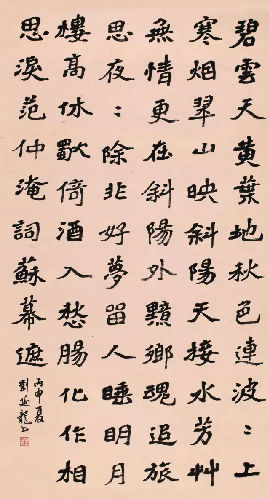 碧雲天黄葉地秋色連波〻上
寒烟翠山映斜陽天接水芳艸
無情更在斜陽外黯鄉魂追旅
思夜〻除非好夢留人睡明月
樓高休獨倚酒入愁腸化作相
思淚范仲淹詞蘇幕遮
丙申夏
劉延龍